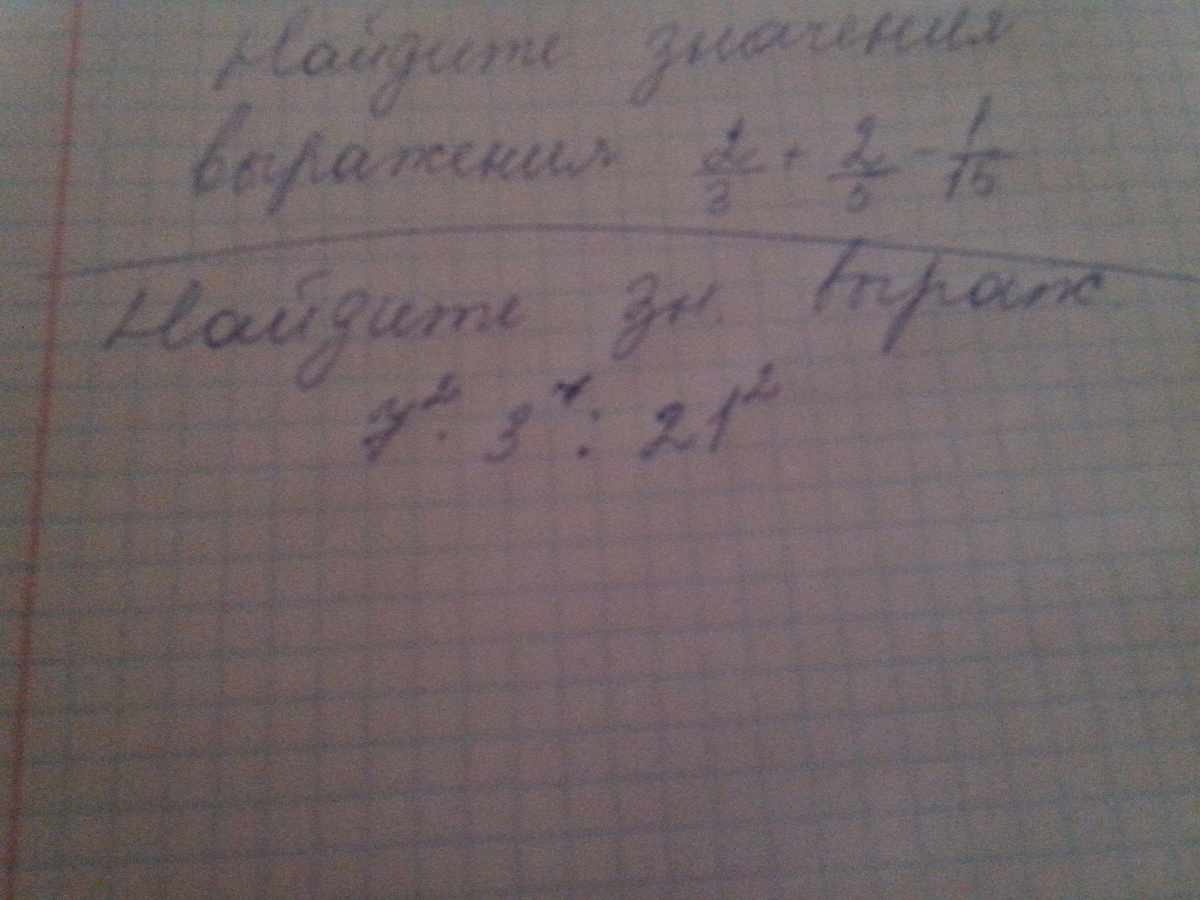 Найдите значения
выражения 2/3 + 2/5 - 1/15
Найдите зн. выраж
7² · 3⁴ : 21²